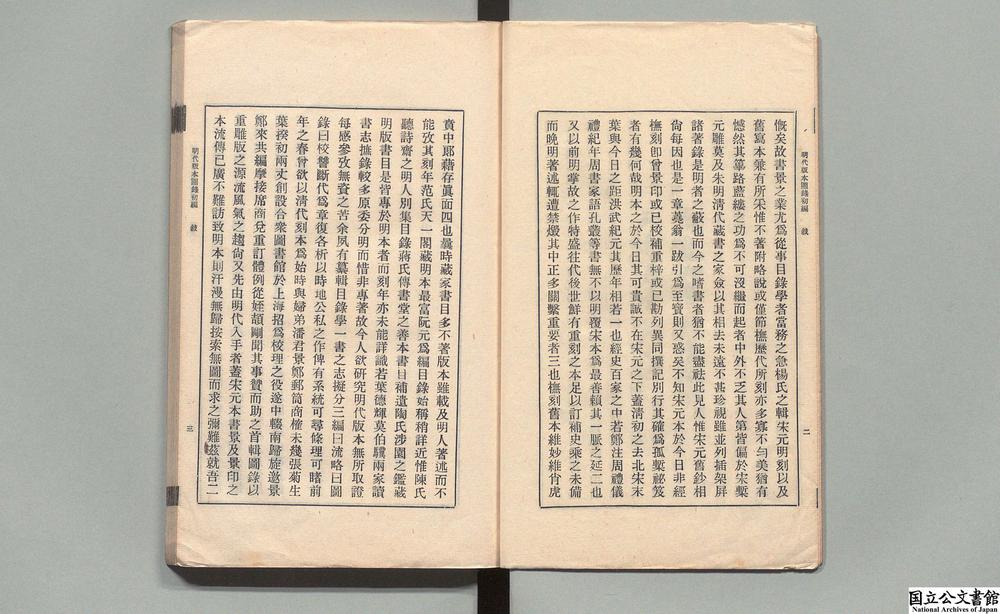 慨矣故書景之業尤爲從事目錄學者當務之急楊氏之輯宋元明刻以及
舊寫本兼有所采惟不著附略說或僅節橅歷代所刻亦多寡不勻美猶有
憾然其篳路藍縷之功爲不可沒繼而起者中外不乏其人第皆偏於宋槧
元雕莫及朱明清代藏書之家僉以其相去未遠不甚珍視並列插架屏
諸著錄是明者之蔽也而今之嗜書者猶不能盡祛此見人惟宋元舊鈔相
尙每因也是一章蕘翁一跋引爲至寶則又惑矣不知宋元本於今日非經
橅刻卽曾景印或已校補重梓或已勘列異同撰記別行其確爲孤槧祕笈
者有幾何哉明本之於今日其可貴誠不在宋元之下蓋淸初之去北宋末
葉與今日之距洪武紀元其歷年相若一也經史百家之中若鄭注周禮儀
禮紀年周書家語孔叢等書無不以明覆宋本爲最善賴其一脈之延二也
又以前明掌故之作特盛往代後世鮮有重刻之本足以訂補史乘之未備
而晚明著述輒遭禁燬其中正多關繫重要者三也橅刻舊本維妙維肖虎
明代版本圖錄初編 敍
二
賁中郞藉存眞面四也曩時藏家書目多不著版本雖載及明人著述而不
能攷其刻年范氏天一閣藏明本最富阮元爲編目錄始稱稍詳近惟陳氏
聽詩齋之明人別集目錄蔣氏傳書堂之善本書目補遺陶氏涉園之鑑藏
明版書目是皆專於明本者而刻年亦未能詳識若葉德輝莫伯驥兩家讀
書志摭錄較多原委分明而惜非專著故今人欲研究明代版本無所取證
每感參攷無資之苦余夙有纂輯目錄學一書之志擬分三編曰流略曰圖
錄曰校讐斷代爲章復各析以時地公私之作俾有系統可尋條理可睹前
年之春曾欲以淸代刻本爲始時與婦弟潘君景鄭郵筒商榷未幾張菊生
葉揆初兩丈創設合衆圖書館於上海招爲校理之役遂中輟南歸旋邀景
鄭來共編摩接席商兌重訂體例從姪頡剛聞其事贊而助之首輯圖錄以
重雕版之源流風氣之趨尙又先由明代入手者蓋宋元本書景及景印之
本流傳已廣不難訪致明本則汗漫無歸按索無圖而求之彌難茲就吾二
明代版本圖錄初編 敍
三
国立公文書館
National Archives of Japan